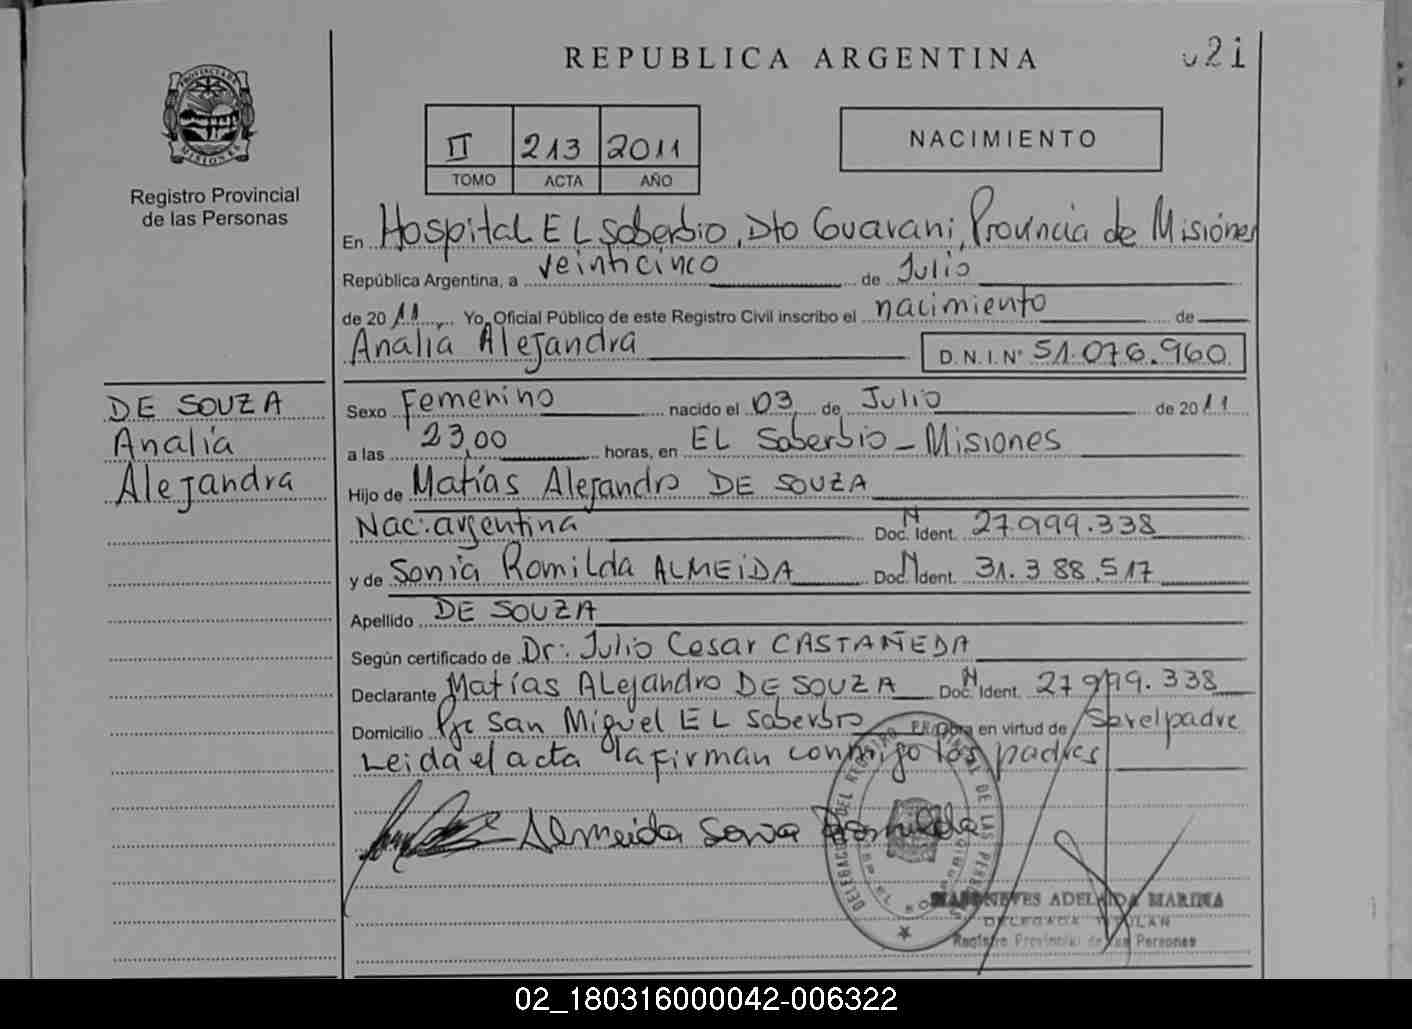 REPUBLICA ARGENTINA
021
PROVINCIA DE MISIONES
Registro Provincial
de las Personas
II 213 2011
TOMO ACTA AÑO
NACIMIENTO
En Hospital EL Soberbio, Dto Guarani, Provincia de Misiones
República Argentina, a veinticinco de Julio
de 2011, Yo, Oficial Público de este Registro Civil inscribo el nacimiento de
Analia Alejandra D.N.I. Nº 51.076.960
DE SOUZA
Analía
Alejandra
Sexo Femenino nacido el 03 de Julio de 2011
a las 23,00 horas, en EL Soberbio - Misiones
Hijo de Matías Alejandro DE SOUZA
Nac: argentina Doc. N Ident. 27.999.338
y de Sonia Romilda ALMEIDA Doc. N Ident. 31.388.517
Apellido DE SOUZA
Según certificado de Dr: Julio Cesar CASTAÑEDA
Declarante Matías ALejandro DE SOUZA Doc. N Ident. 27.999.338
Domicilio Pje San Miguel EL Soberbio Obra en virtud de Ser el padre
Leida el acta la firman conmigo los padres
Almeida Sonia Romilda
DELEGACION DEL REGISTRO PROVINCIAL DE LAS PERSONAS
NEVES ADELAIDA MARINA
DELEGADA TITULAR
Registro Provincial de las Personas
02_180316000042-006322